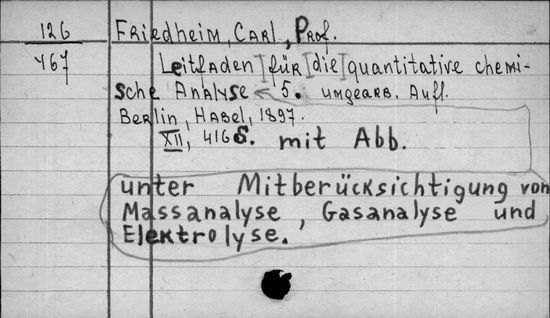 126 Friedheim, Carl, Prof.
Y67 Leitfaden für die quantitative chemi-
sche Analyse 5. umgearb. Aufl.
Berlin, Habel, 1897.
XII, 416 S. mit Abb.
unter Mitberücksichtigung von
Massanalyse, Gasanalyse und
Elektrolyse.